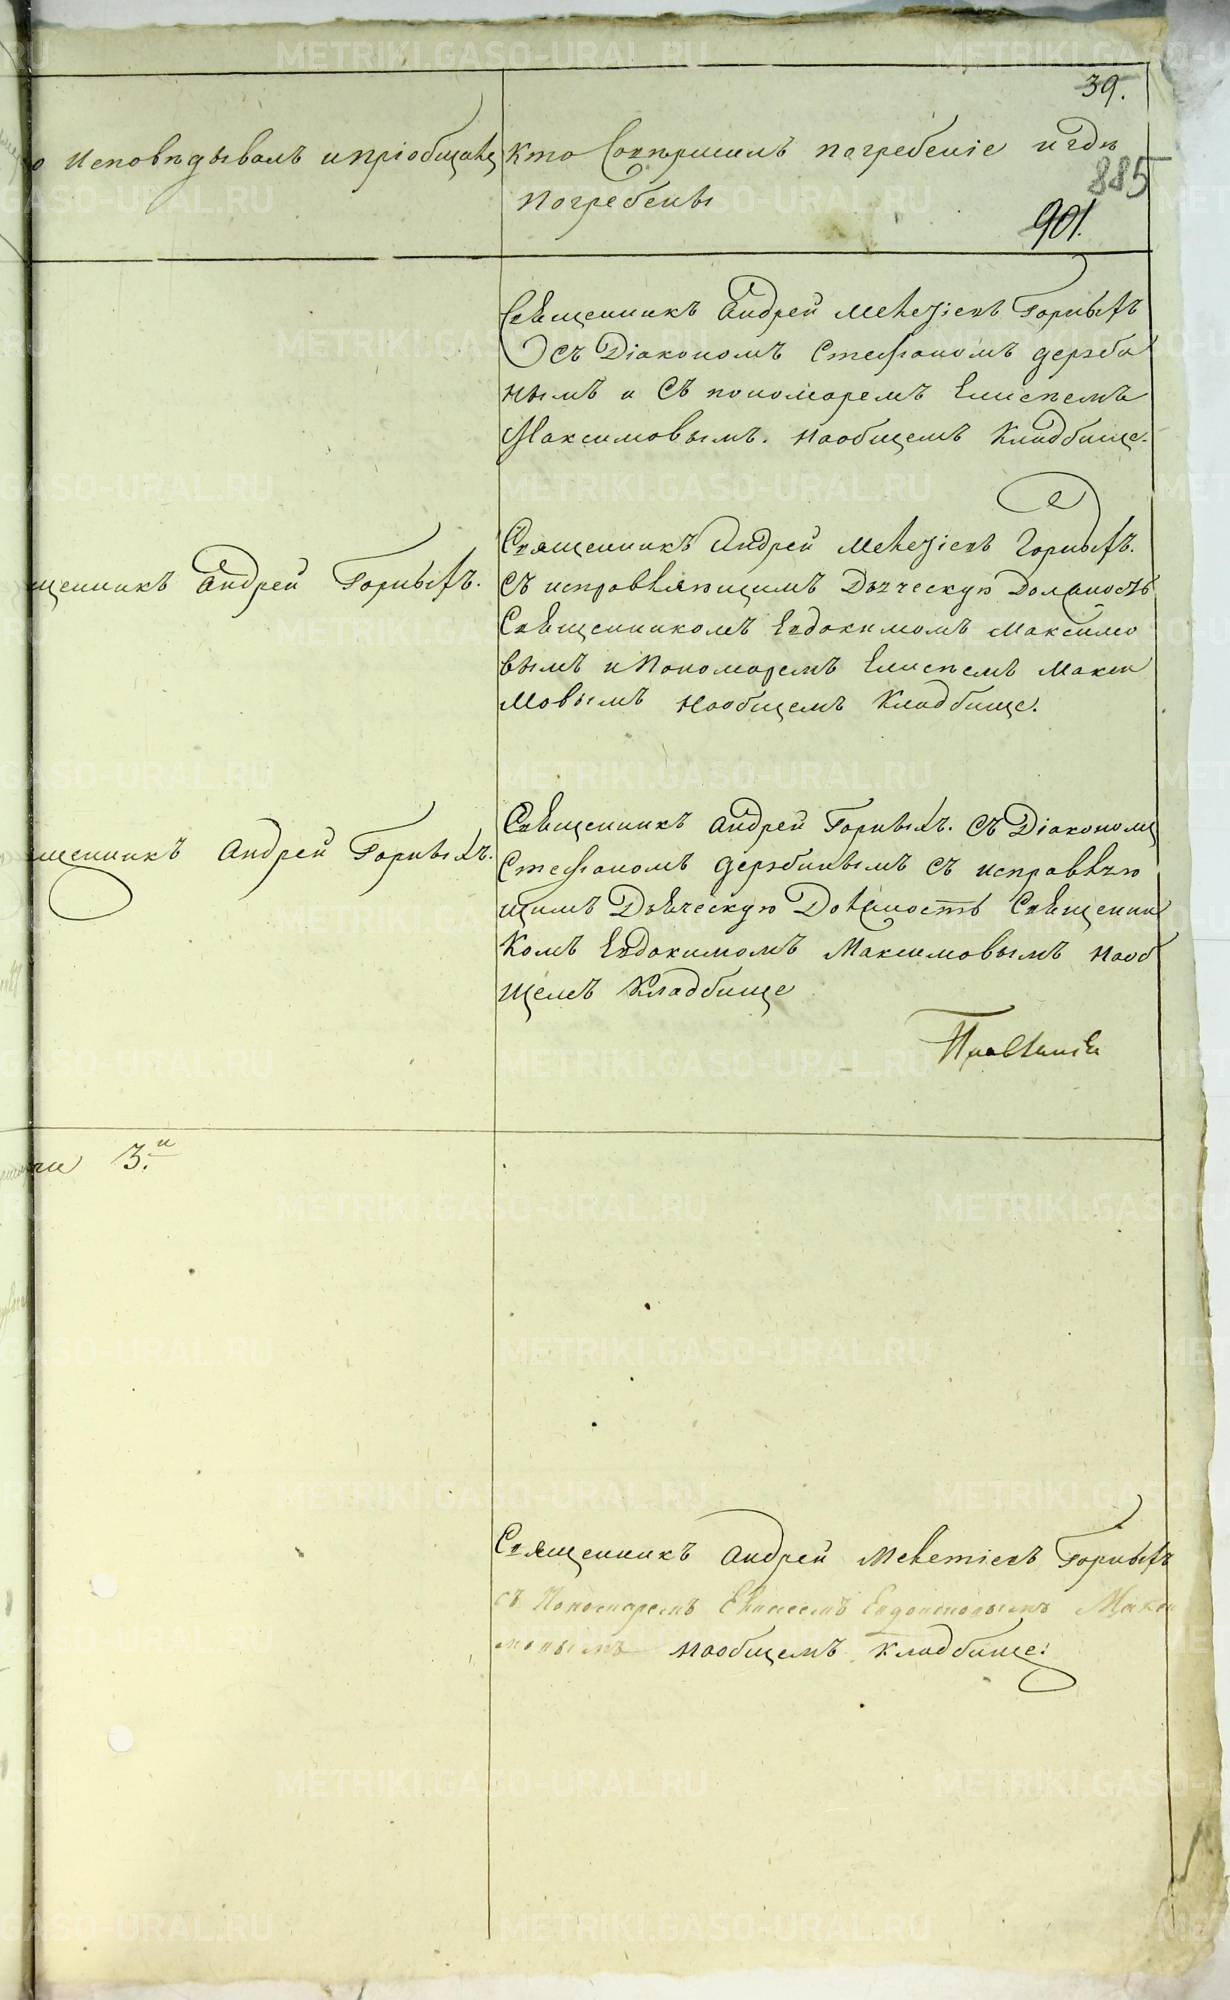 39.
о исповѣдывалъ и пріобщалъ
Кто Совершилъ погребеніе и гдѣ
погребены
885
901.
Священникъ Андрей Мелетіевъ Горныхъ
съ Діакономъ Стефаномъ Держби
нымъ и съ пономаремъ Елисеемъ
Максимовымъ. на общемъ Кладбище.
щенникъ Андрей Горныхъ.
Священникъ Андрей Мелетіевъ Горныхъ.
съ исправляющимъ Дьяческую Должность
Священникомъ Евдокимомъ Максимо
вымъ и Пономаремъ Елисеемъ Макси
мовымъ на общемъ Кладбище.
щенникъ Андрей Горныхъ.
Священникъ Андрей Горныхъ. съ Діакономъ
Стефаномъ Держбинымъ съ исправляю
щимъ Дьяческую Должность Священни
комъ Евдокимомъ Максимовымъ на об
щемъ Кладбище
ти 3.и
Священникъ Андрей Мелетіевъ Горныхъ
съ Пономаремъ Елисеемъ Евдокимовымъ Макси
мовымъ на общемъ кладбище.
METRIKI.GASO-URAL.RU